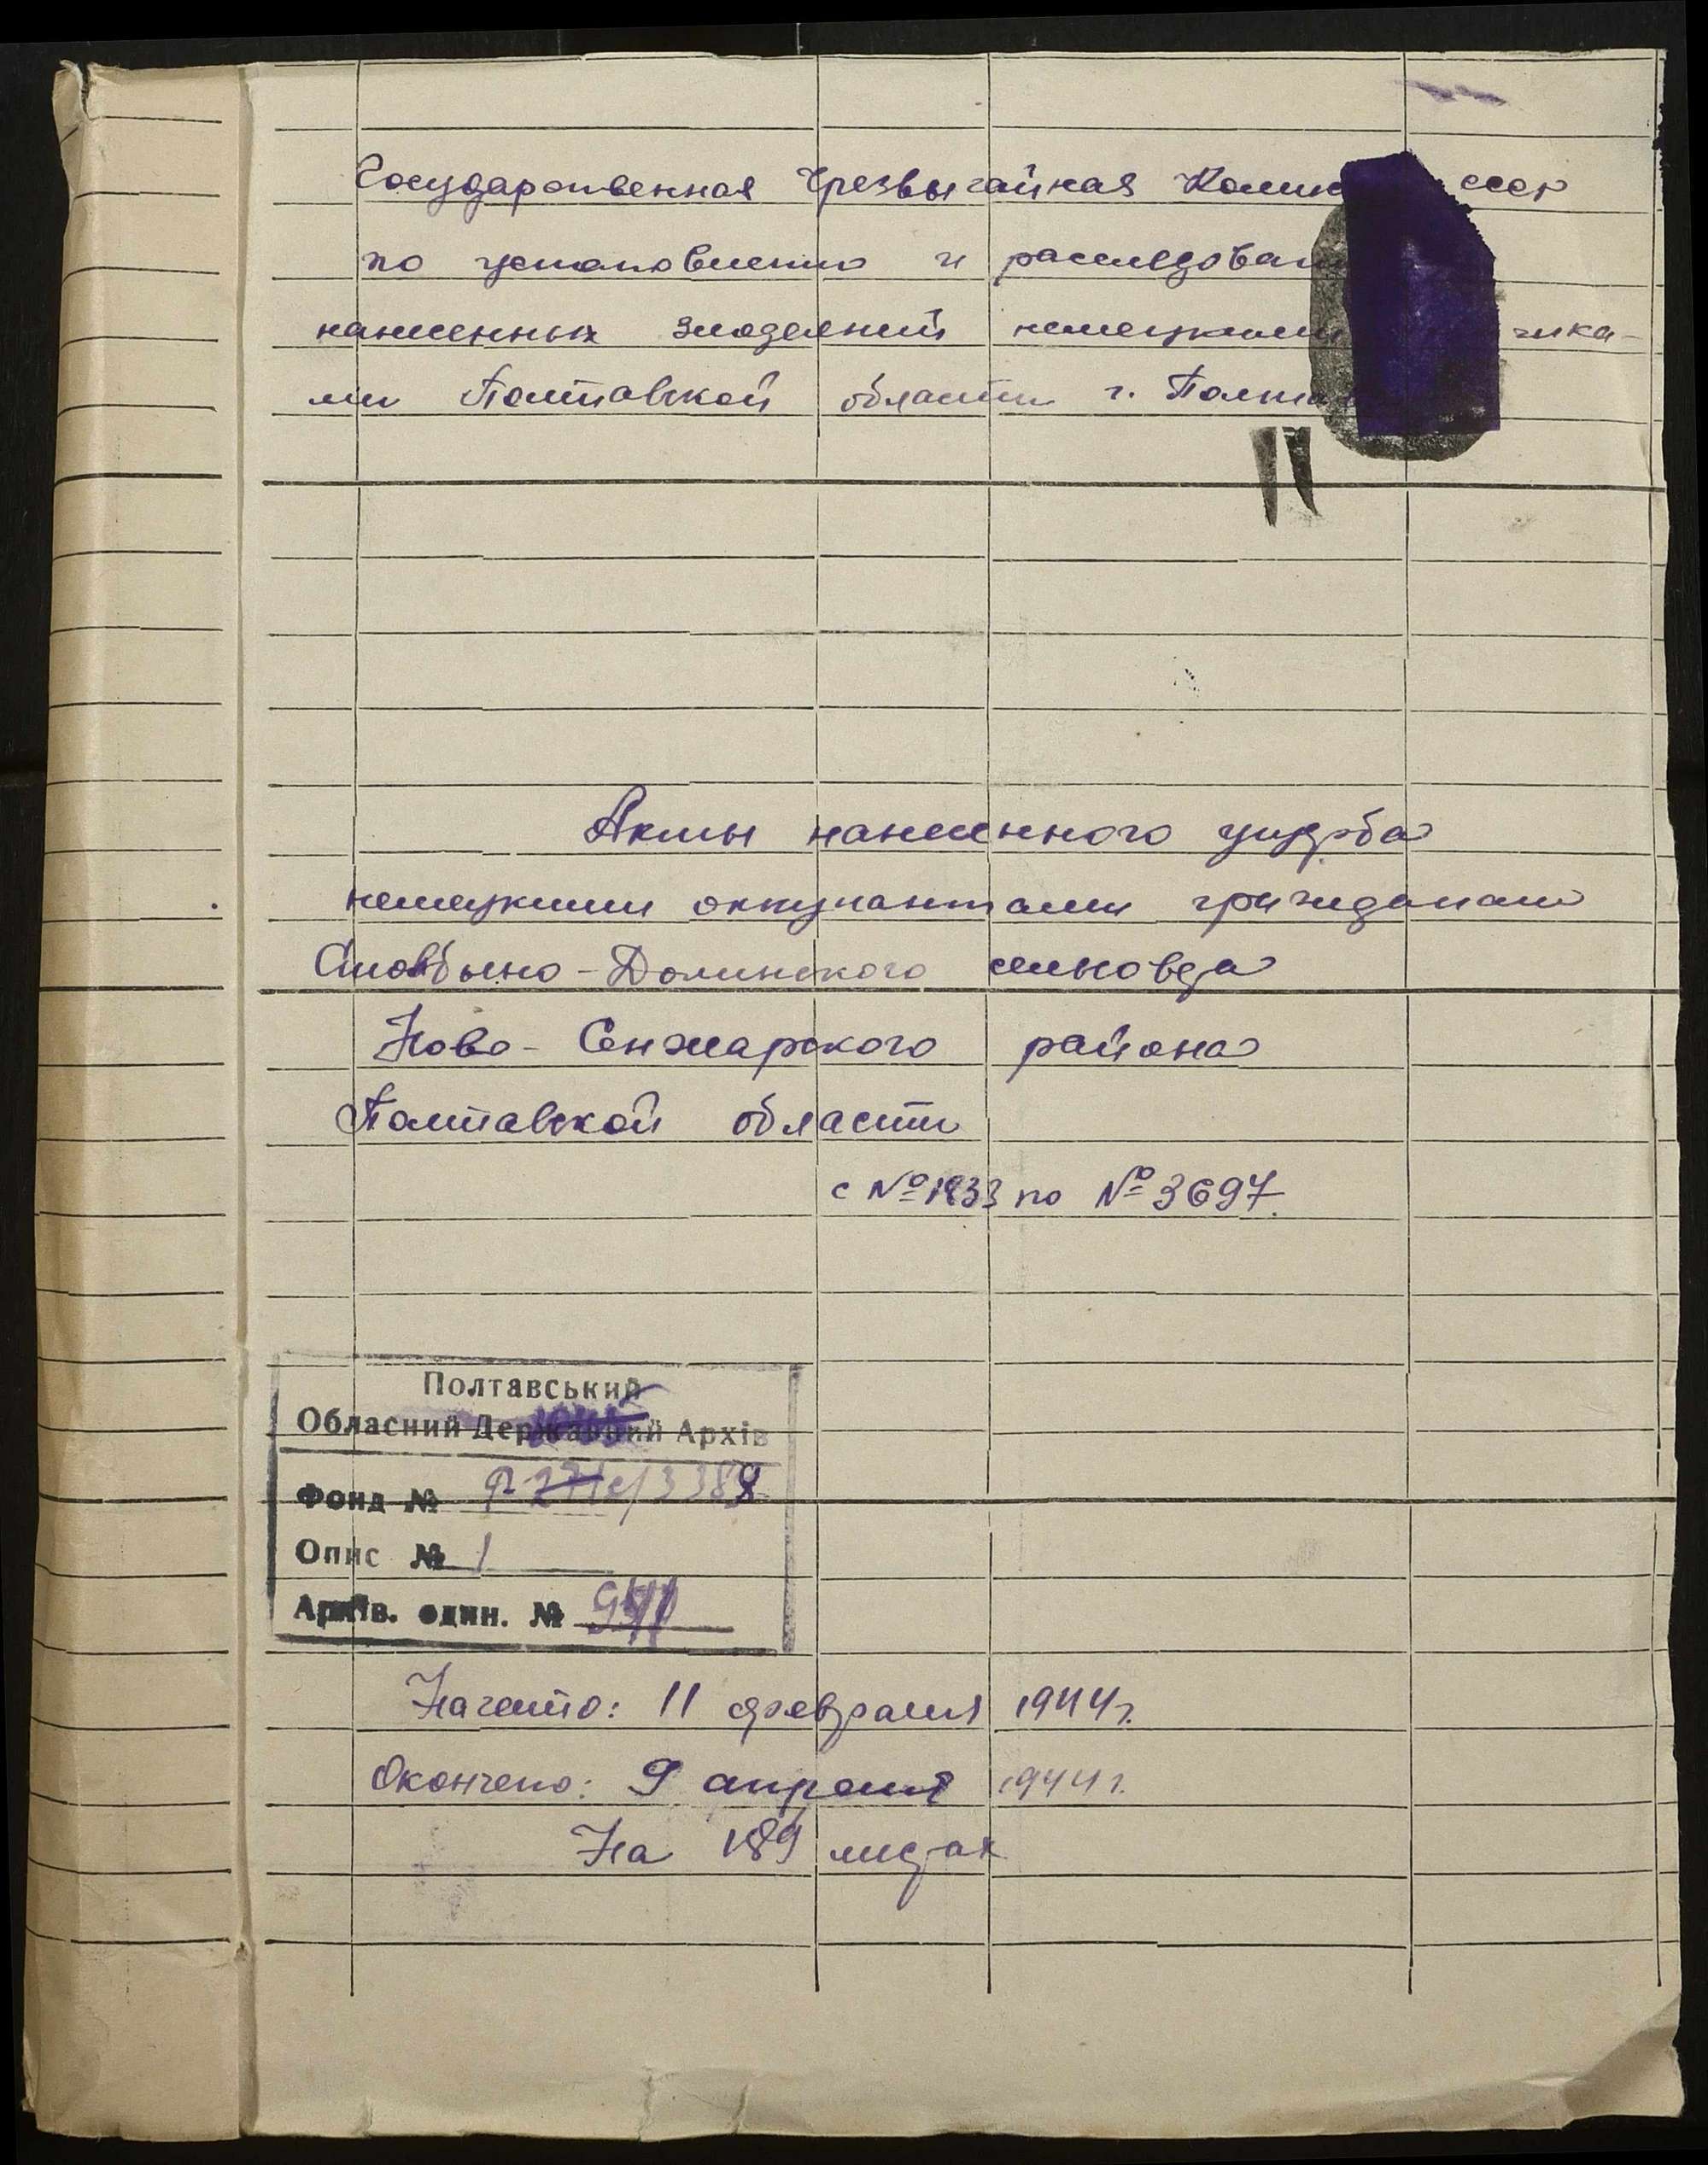 Государственная Чрезвычайная Комис СССР
по установлению и расследован
нанесенных злодеяний немецкими чика-
ми Полтавской области г. Полтав
Акты нанесенного ущерба
немецкими оккупантами гражданам
Стовбыно-Долинского сельсовета
Ново-Сенжарского района
Полтавской области
с №1833 по №3697.
Полтавський
Обласний Державний Архів
Фонд № 3388
Опис № 1
Архів. один. №
Начато: 11 февраля 1944 г.
Окончено: 9 апреля 1944 г.
На 189 листах